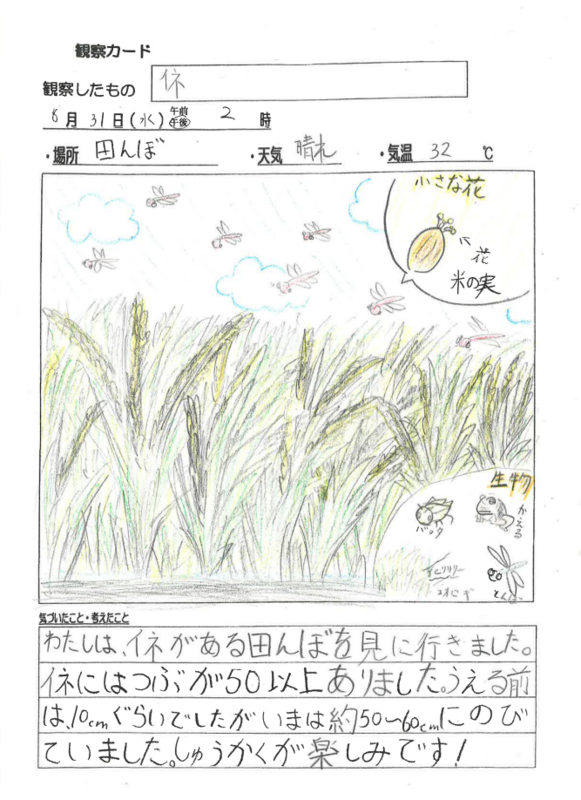 観察カード
観察したもの イネ
8月31日(水) 午前 午後 2時
・場所 田んぼ ・天気 晴れ ・気温 32℃
小さな花
花
米の実
生物
バッタ
かえる
とんぼ
気づいたこと・考えたこと
わたしは、イネがある田んぼを見に行きました。
イネにはつぶが50以上ありました。うえる前
は、10cmぐらいでしたがいまは約50〜60cmにのび
ていました。しゅうかくが楽しみです!